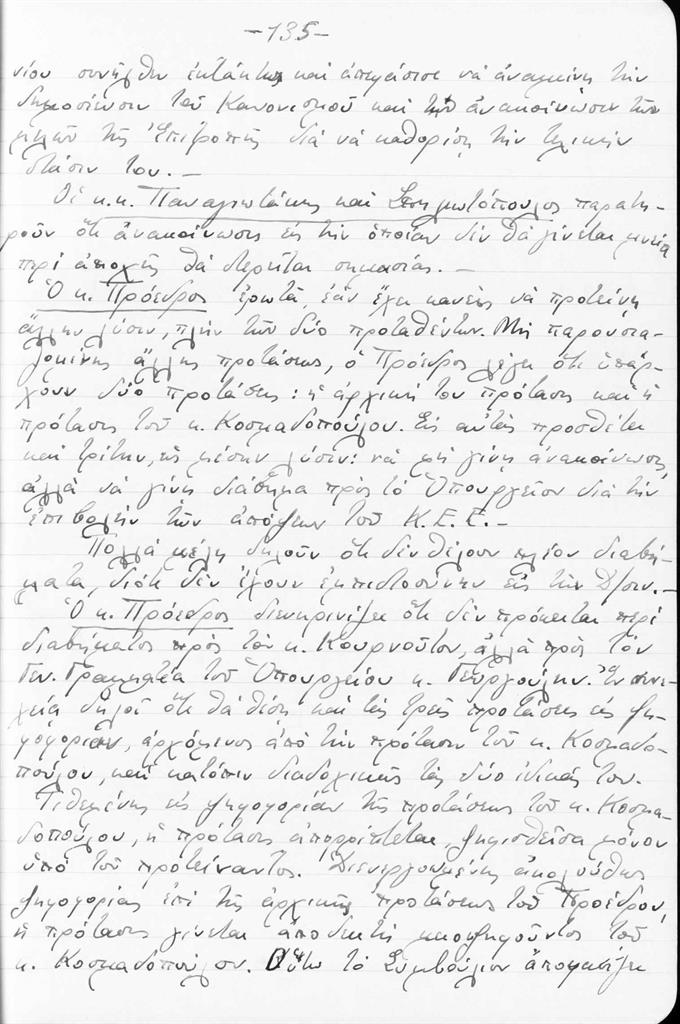 -135-
νίου συνῆλθεν ἐκτάκτως καὶ ἀπεφάσισε νὰ ἀναμείνῃ τὴν
δημοσίευσιν τοῦ Κανονισμοῦ καὶ τὴν ἀνακοίνωσιν τῶν
μελῶν τῆς Ἐπιτροπῆς διὰ νὰ καθορίσῃ τὴν τελικὴν
στάσιν του.-
Οἱ κ.κ. Παναγιωτάκης καὶ Σπηλιωτόπουλος παρατη-
ροῦν ὅτι ἀνακοίνωσις εἰς τὴν ὁποίαν δὲν θὰ γίνεται μνεία
περὶ ἀποχῆς θὰ στερῆται σημασίας.-
Ὁ κ. Πρόεδρος ἐρωτᾷ, ἐὰν ἔχῃ κανεὶς νὰ προτείνῃ
ἄλλην λύσιν, πλὴν τῶν δύο προταθέντων. Μὴ παρουσια-
ζομένης ἄλλης προτάσεως, ὁ Πρόεδρος λέγει ὅτι ὑπάρ-
χουν δύο προτάσεις: ἡ ἀρχική του πρότασις καὶ ἡ
πρότασις τοῦ κ. Κοσμαδοπούλου. Εἰς αὐτὰς προσθέτει
καὶ τρίτην, ὡς μέσην λύσιν: νὰ μὴ γίνῃ ἀνακοίνωσις,
ἀλλὰ νὰ γίνῃ διάβημα πρὸς τὸ Ὑπουργεῖον διὰ τὴν
ἐπιβολὴν τῶν ἀπόψεων τοῦ Κ.Ε.Ε.-
Πολλὰ μέλη δηλοῦν ὅτι δὲν θέλουν πλέον διαβή-
ματα, διότι δὲν ἔχουν ἐμπιστοσύνην εἰς τὴν Δ/σιν.-
Ὁ κ. Πρόεδρος διευκρινίζει ὅτι δὲν πρόκειται περὶ
διαβήματος πρὸς τὸν κ. Κουρνοῦτον, ἀλλὰ πρὸς τὸν
Γεν. Γραμματέα τοῦ Ὑπουργείου κ. Γεωργούλην. Ἐν συνε-
χείᾳ δηλοῖ ὅτι θὰ θέσῃ καὶ τὰς τρεῖς προτάσεις εἰς ψη-
φοφορίαν, ἀρχόμενος ἀπὸ τὴν πρότασιν τοῦ κ. Κοσμαδο-
πούλου, καὶ κατόπιν διαδοχικῶς τὰς δύο ἰδικάς του.
Τιθεμένης εἰς ψηφοφορίαν τῆς προτάσεως τοῦ κ. Κοσμα-
δοπούλου, ἡ πρότασις ἀπορρίπτεται, ψηφισθεῖσα μόνον
ὑπὸ τοῦ προτείναντος. Διενεργουμένης ἀκολούθως
ψηφοφορίας ἐπὶ τῆς ἀρχικῆς προτάσεως τοῦ Προέδρου,
ἡ πρότασις γίνεται ἀποδεκτὴ μειοψηφοῦντος τοῦ
κ. Κοσμαδοπούλου. Οὕτω τὸ Συμβούλιον ἀποφασίζει